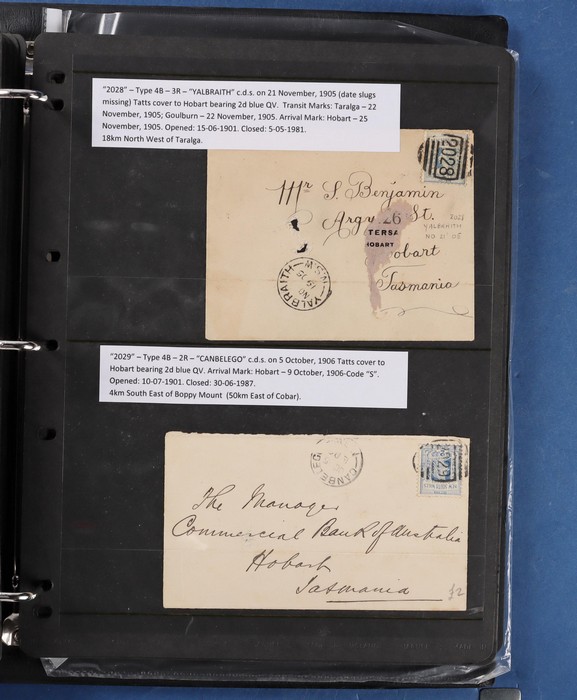 "2028" – Type 4B – 3R – "YALBRAITH" c.d.s. on 21 November, 1905 (date slugs
missing) Tatts cover to Hobart bearing 2d blue QV.  Transit Marks: Taralga – 22
November, 1905; Goulburn – 22 November, 1905. Arrival Mark: Hobart – 25
November, 1905. Opened: 15-06-1901. Closed: 5-05-1981.
18km North West of Taralga.
2028
Mr S. Benjamin
26 St.
TERSA
HOBART
Hobart
Tasmania
2028
YALBRAITH
NO 21 05
YALBRAITH N.S.W
NO
"2029" – Type 4B – 2R – "CANBELEGO" c.d.s. on 5 October, 1906 Tatts cover to
Hobart bearing 2d blue QV. Arrival Mark: Hobart – 9 October, 1906-Code "S".
Opened: 10-07-1901. Closed: 30-06-1987.
4km South East of Boppy Mount  (50km East of Cobar).
CANBELEG
The Manager
Commercial Bank of Australia
Hobart
Tasmania